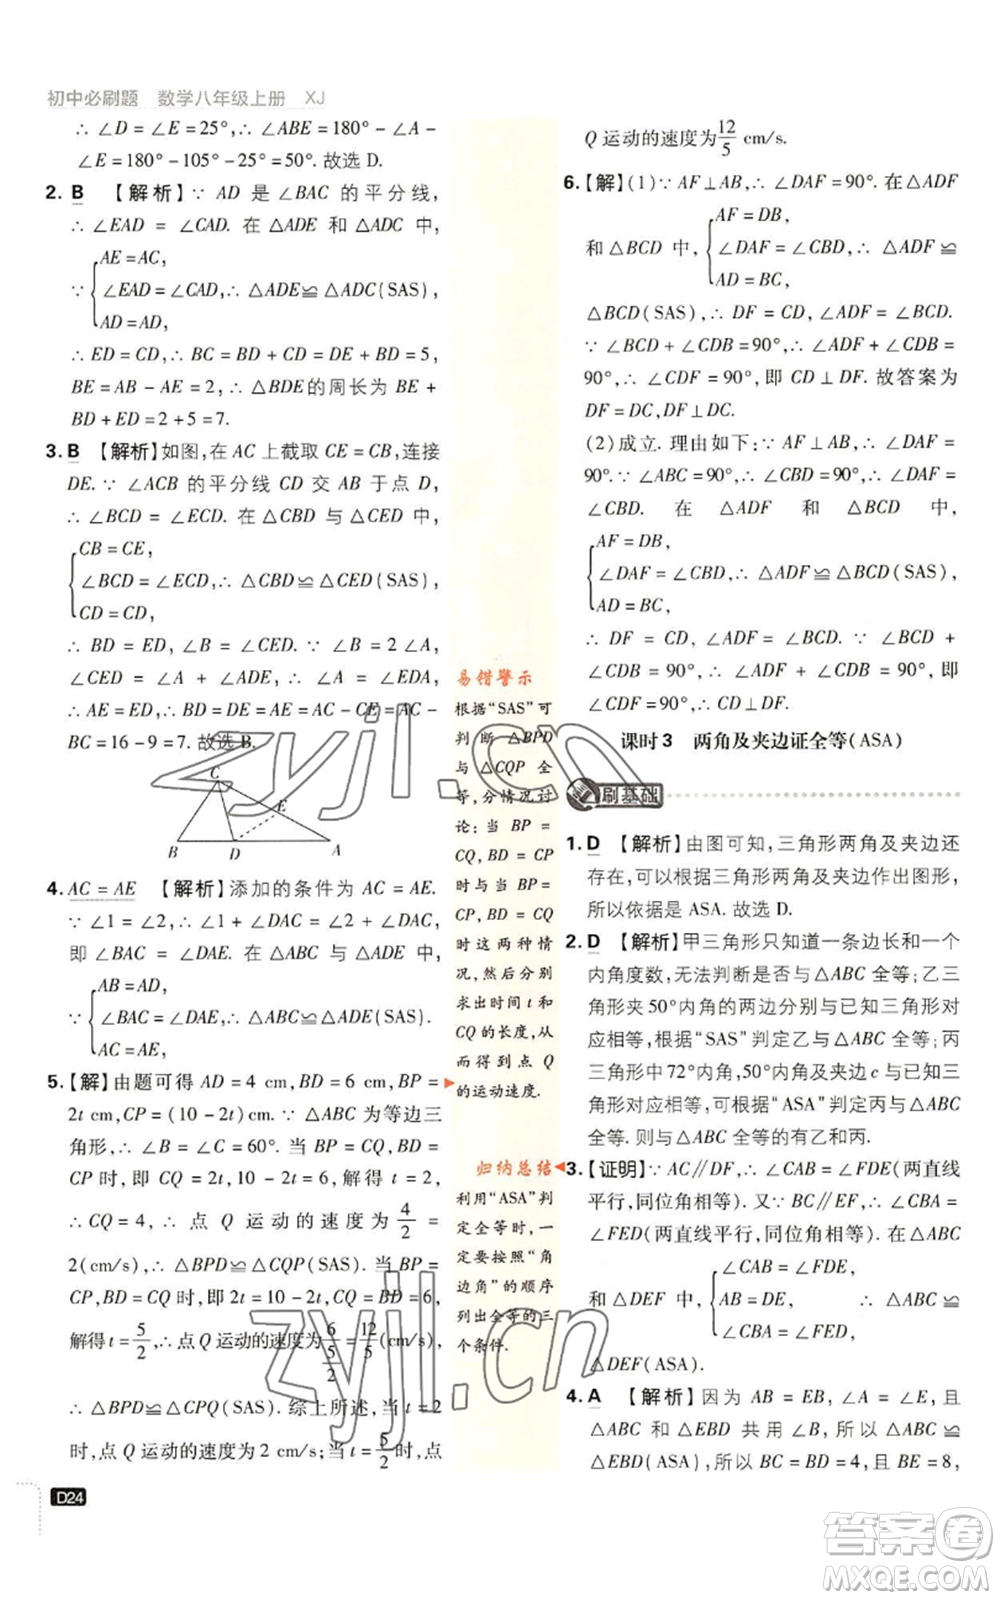 初中必刷题 数学八年级上册 XJ
∴ ∠D = ∠E = 25°, ∴ ∠ABE = 180° - ∠A -
∠E = 180° - 105° - 25° = 50°. 故选 D.
2. B 【解析】∵ AD 是 ∠BAC 的平分线,
∴ ∠EAD = ∠CAD. 在 △ADE 和 △ADC 中,
AE = AC,
∵ ∠EAD = ∠CAD, ∴ △ADE≌△ADC(SAS),
AD = AD,
∴ ED = CD, ∴ BC = BD + CD = DE + BD = 5,
BE = AB - AE = 2, ∴ △BDE的周长为 BE +
BD + ED = 2 + 5 = 7.
3. B 【解析】如图,在 AC 上截取 CE = CB,连接
DE. ∵ ∠ACB 的平分线 CD 交 AB 于点 D,
∴ ∠BCD = ∠ECD. 在 △CBD 与 △CED 中,
CB = CE,
∠BCD = ∠ECD, ∴ △CBD≌△CED(SAS),
CD = CD,
∴ BD = ED, ∠B = ∠CED. ∵ ∠B = 2∠A,
∠CED = ∠A + ∠ADE, ∴ ∠A = ∠EDA,
∴ AE = ED, ∴ BD = AE = AC - CE = AC -
BC = 16 - 9 = 7. 故选 B.
C
E
B D A
4. AC = AE 【解析】添加的条件为 AC = AE.
∵ ∠1 = ∠2, ∴ ∠1 + ∠DAC = ∠2 + ∠DAC,
即 ∠BAC = ∠DAE. 在 △ABC 与 △ADE 中,
AB = AD,
∵ ∠BAC = ∠DAE, ∴ △ABC≌△ADE(SAS).
AC = AE,
5. 【解】由题可得 AD = 4 cm, BD = 6 cm, BP =
2t cm, CP = (10 - 2t) cm. ∵ △ABC 为等边三
角形, ∴ ∠B = ∠C = 60°. 当 BP = CQ, BD =
CP 时, 即 CQ = 2t, 10 - 2t = 6, 解得 t = 2,
∴ CQ = 4, ∴ 点 Q 运动的速度为 4/2 =
2(cm/s), ∴ △BPD≌△CQP(SAS). 当 BP =
CP, BD = CQ 时, 即 2t = 10 - 2t, BD = CQ = 6,
解得 t = 5/2, ∴ 点 Q 运动的速度为 6/(5/2) = 12/5 (cm/s),
∴ △BPD≌△CQP(SAS). 综上所述, 当 t = 2
时, 点 Q 运动的速度为 2 cm/s; 当 t = 5/2 时, 点
D24
易错警示
根据“SAS”可
判断 △BPD
与 △CQP 全
等, 分情况讨
论: 当 BP =
CQ, BD = CP
时与当 BP =
CP, BD = CQ
时这两种情
况, 然后分别
求出时间 t 和
CQ 的长度, 从
而得到点 Q
的运动速度.
归纳总结
利用“ASA”判
定全等时, 一
定要按照“角
边角”的顺序
列出全等的三
个条件.
Q 运动的速度为 12/5 cm/s.
6. 【解】(1) ∵ AF⊥AB, ∴ ∠DAF = 90°. 在 △ADF
AF = DB,
和 △BCD 中, ∠DAF = ∠CBD, ∴ △ADF≌
AD = BC,
△BCD(SAS), ∴ DF = CD, ∠ADF = ∠BCD.
∵ ∠BCD + ∠CDB = 90°, ∴ ∠ADF + ∠CDB =
90°, ∴ ∠CDF = 90°, 即 CD⊥DF. 故答案为
DF = DC, DF⊥DC.
(2) 成立. 理由如下: ∵ AF⊥AB, ∴ ∠DAF =
90°. ∵ ∠ABC = 90°, ∴ ∠CBD = 90°, ∴ ∠DAF =
∠CBD. 在 △ADF 和 △BCD 中,
AF = DB,
∠DAF = ∠CBD, ∴ △ADF≌△BCD(SAS),
AD = BC,
∴ DF = CD, ∠ADF = ∠BCD. ∵ ∠BCD +
∠CDB = 90°, ∴ ∠ADF + ∠CDB = 90°, 即
∠CDF = 90°, ∴ CD⊥DF.
课时3 两角及夹边证全等(ASA)
刷基础
1. D 【解析】由图可知, 三角形两角及夹边还
存在, 可以根据三角形两角及夹边作出图形,
所以依据是 ASA. 故选 D.
2. D 【解析】甲三角形只知道一条边长和一个
内角度数, 无法判断是否与 △ABC 全等; 乙三
角形夹50°内角的两边分别与已知三角形对
应相等, 根据“SAS”判定乙与 △ABC 全等; 丙
三角形中72°内角, 50°内角及边 c 与已知三
角形对应相等, 可根据“ASA”判定丙与 △ABC
全等. 则与 △ABC 全等的有乙和丙.
3. 【证明】∵ AC∥DF, ∴ ∠CAB = ∠FDE(两直线
平行, 同位角相等). 又∵ BC∥EF, ∴ ∠CBA =
∠FED(两直线平行, 同位角相等). 在 △ABC
∠CAB = ∠FDE,
和 △DEF 中, AB = DE, ∴ △ABC≌
∠CBA = ∠FED,
△DEF(ASA).
4. A 【解析】因为 AB = EB, ∠A = ∠E, 且
△ABC 和 △EBD 共用 ∠B, 所以 △ABC≌
△EBD(ASA), 所以 BC = BD = 4, 又 BE = 8,
zyjl.cn
zyjl.cn
答案圈
MXQE.COM